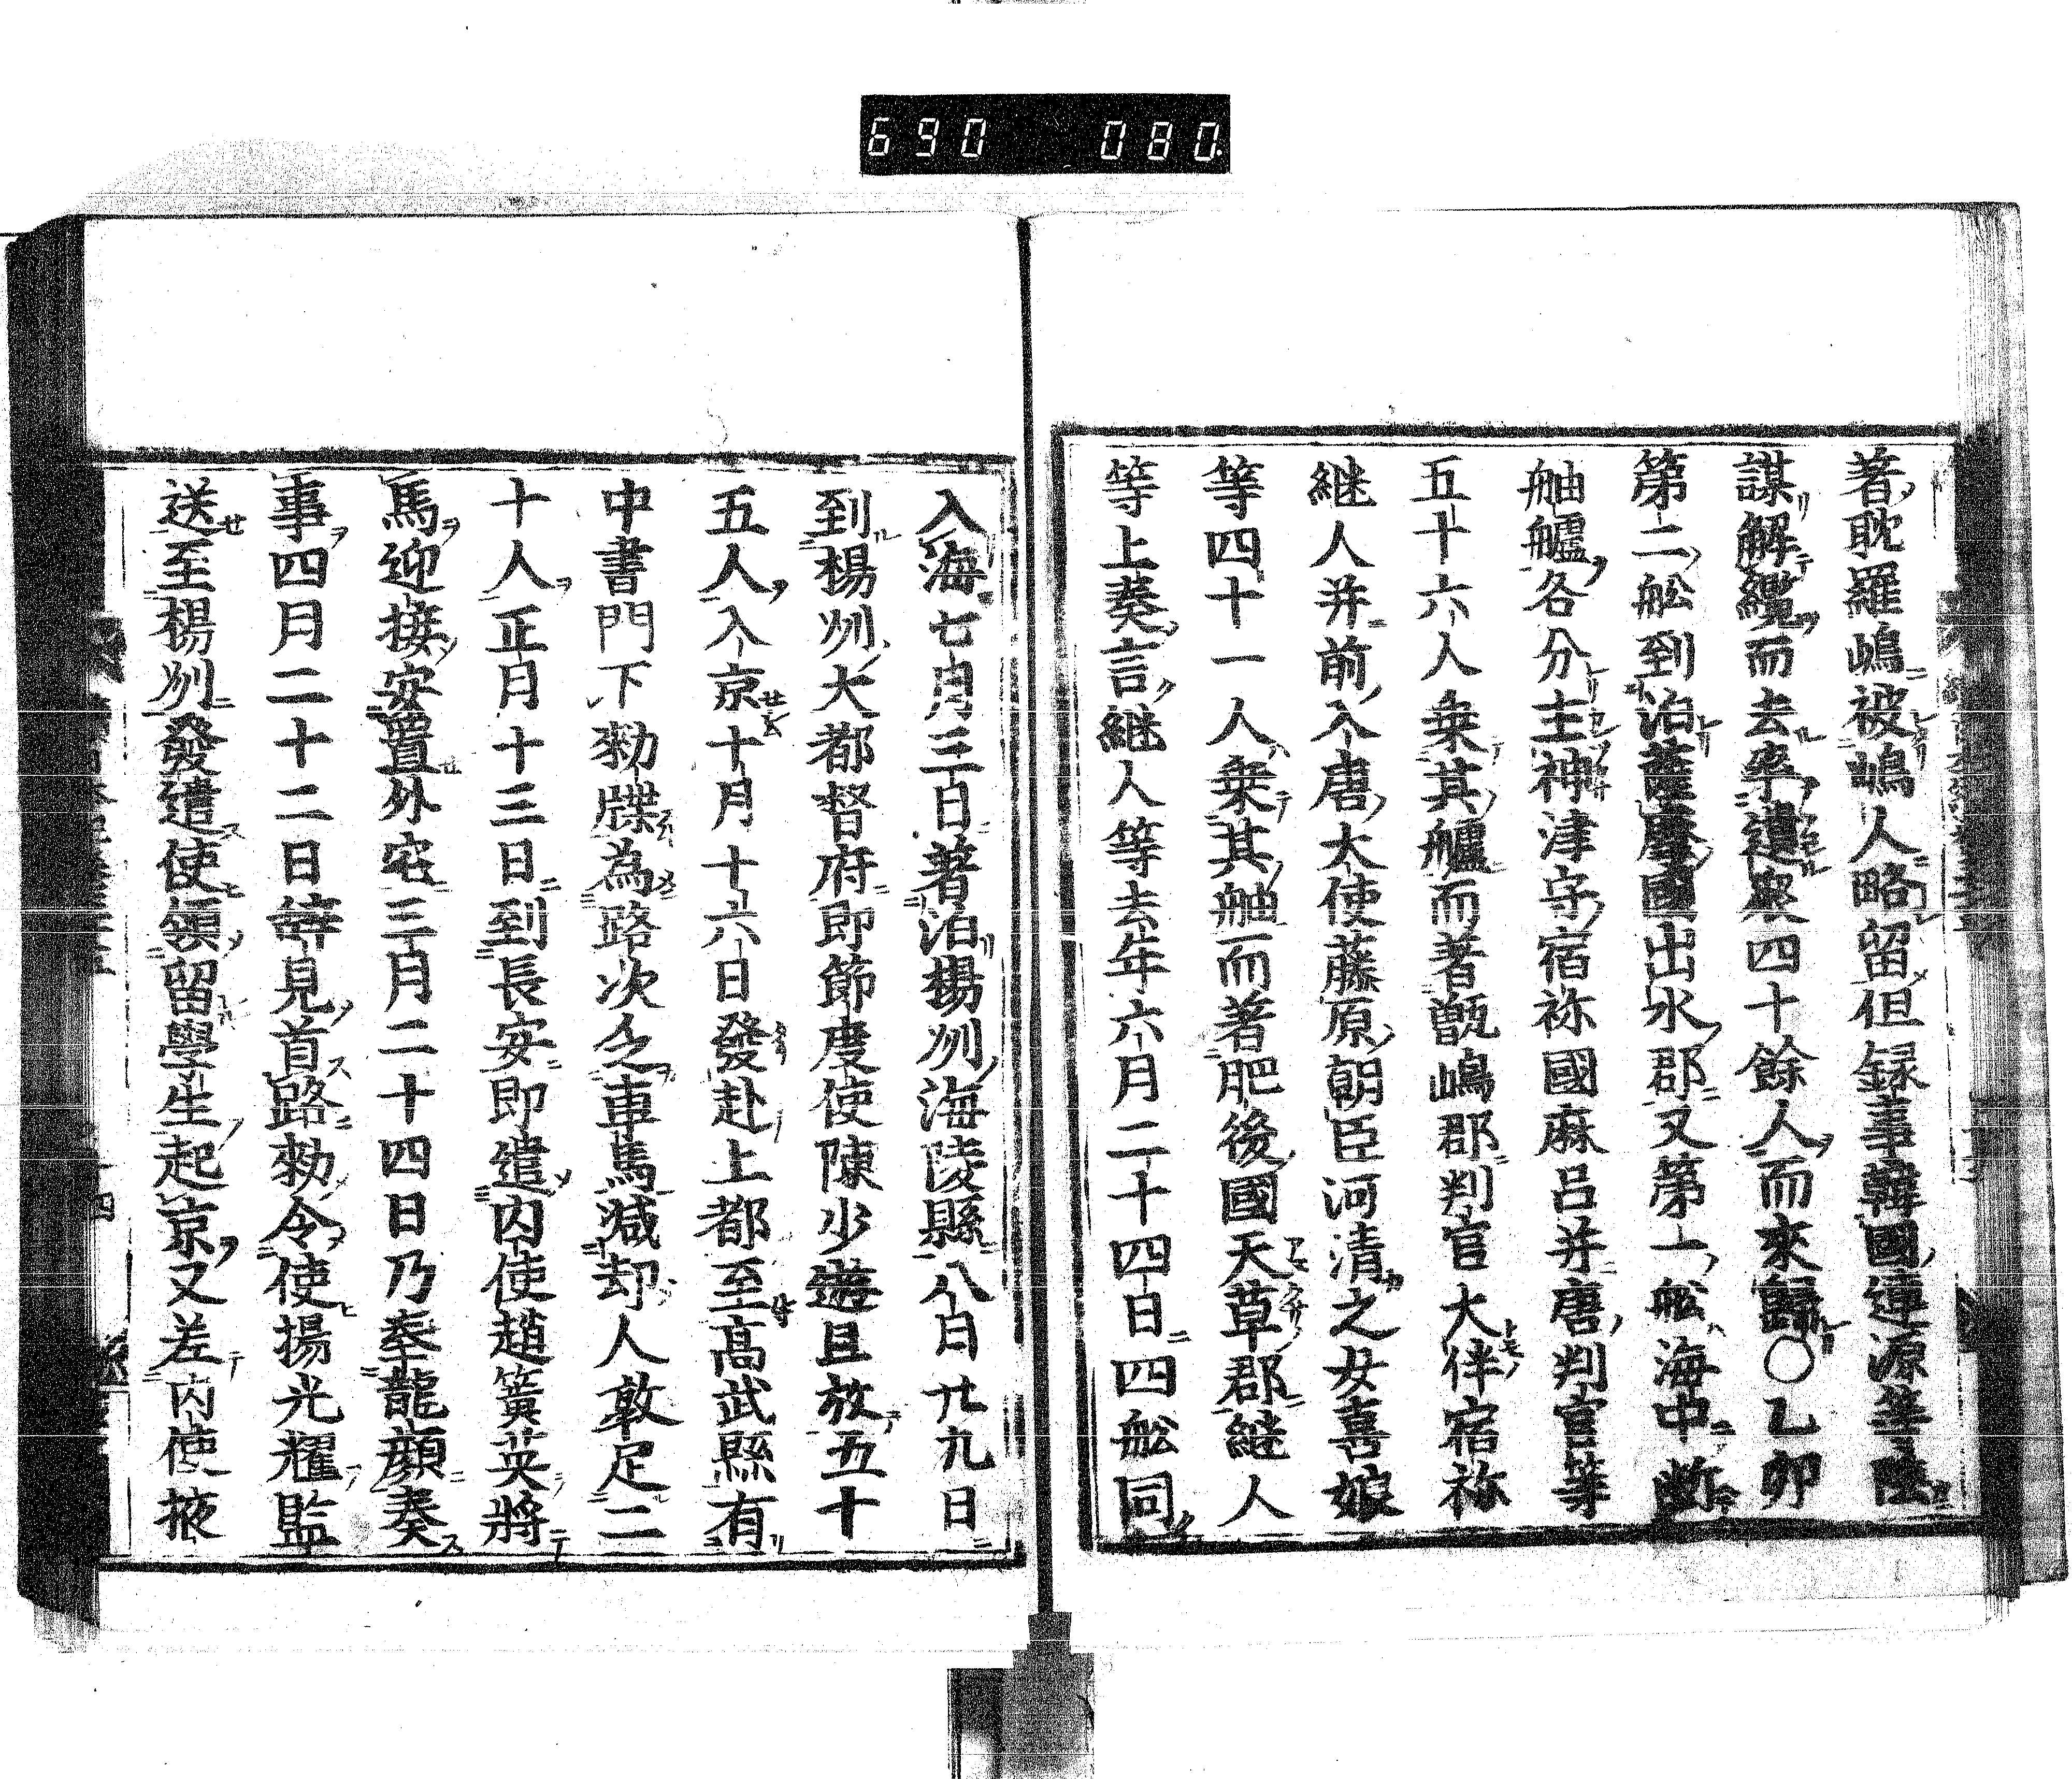 690 080
著耽羅嶋被嶋人略留但録事韓國連源等陰
謀解纜而去率遺衆四十餘人而來歸○乙卯
第二舩到泊薩摩國出水郡又第一舩海中断
舳艫各分主神津守宿祢國麻呂并唐判官等
五十六人乗其艫而著甑嶋郡判官大伴宿祢
継人并前入唐大使藤原朝臣河清之女喜娘
等四十一人乗其舳而著肥後國天草郡継人
等上奏言継人等去年六月二十四日四舩同
入海七月三日著泊楊州海陵縣八月廿九日
到楊州大都督府即節度使陳少遊且放五十
五人入京十月十六日發赴上都至高武縣有
中書門下勅牒為路次乏車馬減却人數定二
十人正月十三日到長安即遣内使趙寶英將
馬迎接安置外宅三月二十四日乃奉龍顔奏
事四月二十二日辞見首路勅令使揚光耀監
送至楊州發遣使領留學生起京又差内使掖